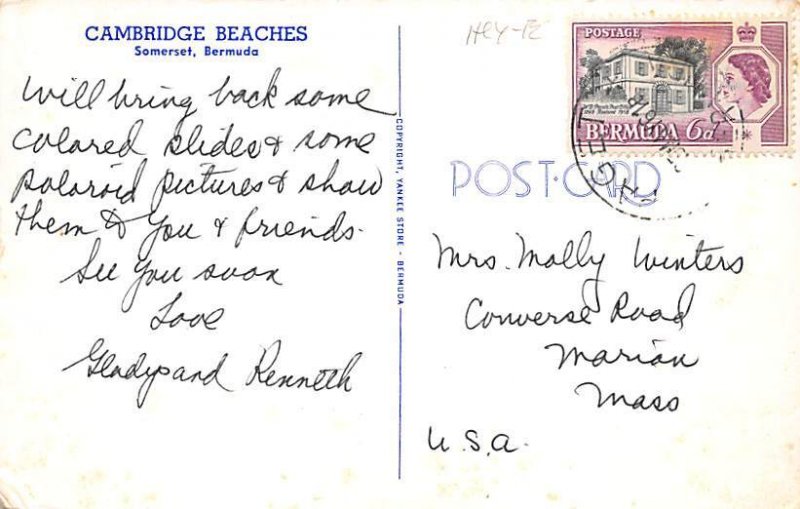 CAMBRIDGE BEACHES
Somerset, Bermuda
Will bring back some
colored slides & some
polaroid pictures & show
them to you & friends.
See you soon
Love
Gladys and Kenneth
COPYRIGHT, YANKEE STORE - BERMUDA
POSTAGE
BERMUDA 6d
POST-CARD
Mrs. Molly Winters
Converse Road
Marion
Mass
U.S.A.